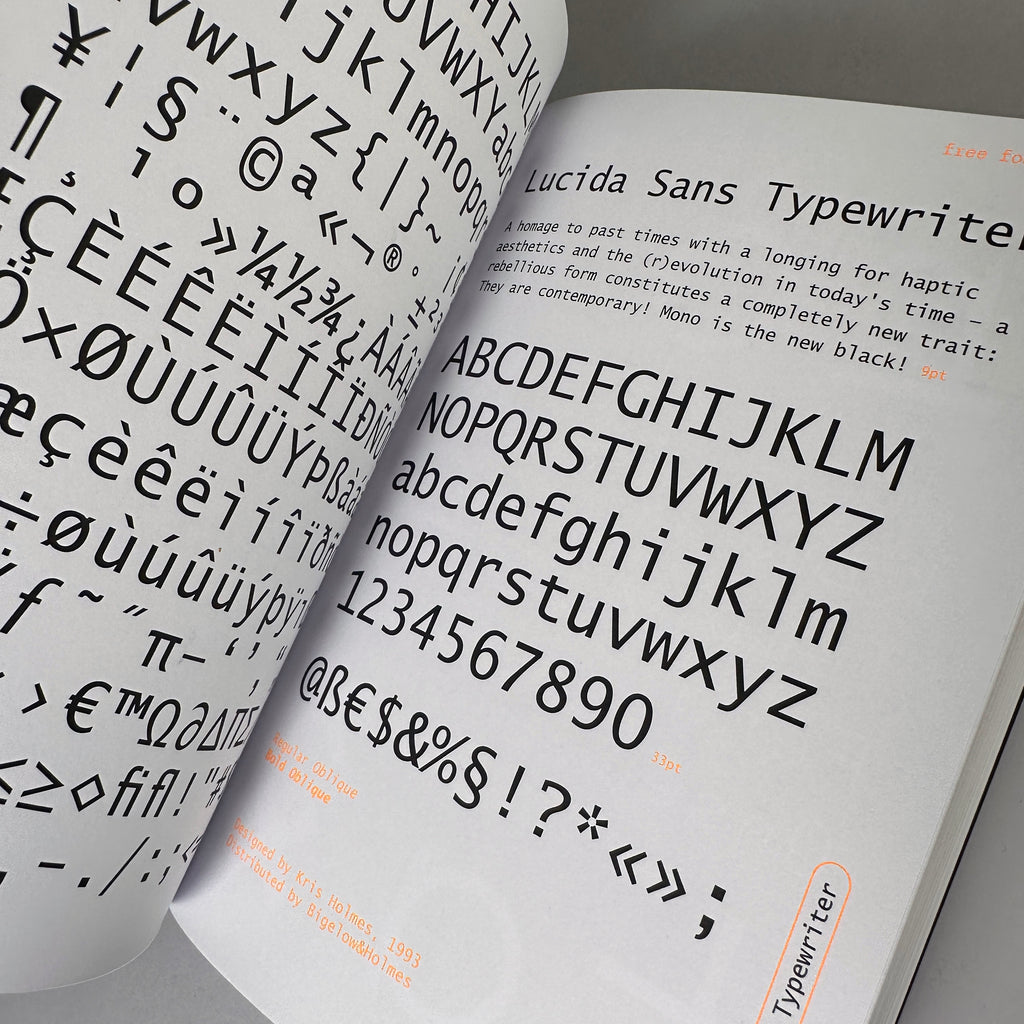 HIJKL
¥¦§¨©a«¬®°
vwxyz{|}~
ijklmnopqr
UVWXYabc
¶¸¹º»¼½¾¿ÀÁÂ
ÇÈÉÊËÌÍÎÏÐÑ
Ö×ØÙÚÛÜÝÞßàá
æçèéêëìíîïðñ
÷øùúûüýþÿ
ƒ˜˝π–‘’‚“
›€™Ω∂∆∏∑
≤≥◊fifl!"#
-./:;
free fo
Lucida Sans Typewriter
A homage to past times with a longing for haptic
aesthetics and the (r)evolution in today's time – a
rebellious form constitutes a completely new trait:
They are contemporary! Mono is the new black! 9pt
ABCDEFGHIJKLM
NOPQRSTUVWXYZ
abcdefghijklm
nopqrstuvwxyz
1234567890
@ß€$&%§!?*«»;
33pt
Regular Oblique
Bold Oblique
Designed by Kris Holmes, 1993
Distributed by Bigelow&Holmes
Typewriter